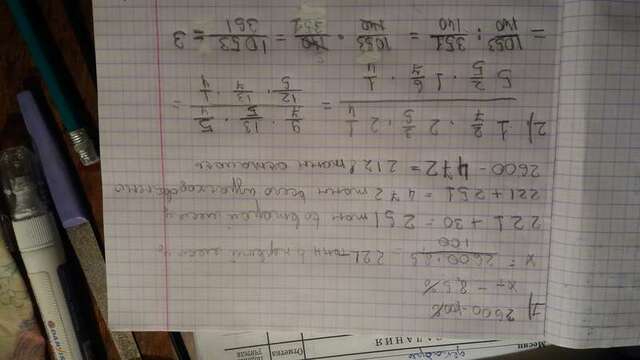 1) 2600 - 100%
x - 8,5%
x = 2600·8,5 / 100 = 221 тонн в первый месяц
221 + 30 = 251 тон во второй месяц
221 + 251 = 472 тонн всего израсходовано
2600 - 472 = 2128 тонн осталось
2) 1 2/7 · 2 3/5 · 2 1/4 / 5 2/5 · 1 6/7 · 1/4 = 9/7 · 13/5 · 5/4 / 12/5 · 13/7 · 1/4 =
= 1053/140 : 351/140 = 1053/140 · 140/351 = 1053/351 = 3
Месяц
ЗАДАНИЯ
Отметка